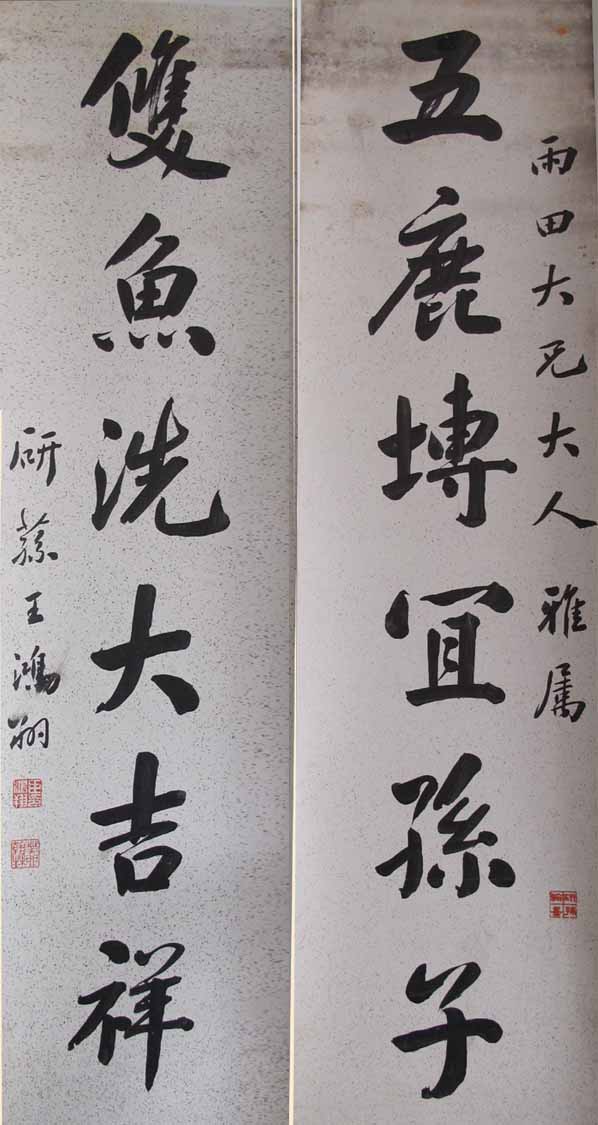 雨田大兄大人雅属
五鹿塼宜孫子
雙魚洗大吉祥
研蓀王鴻翔